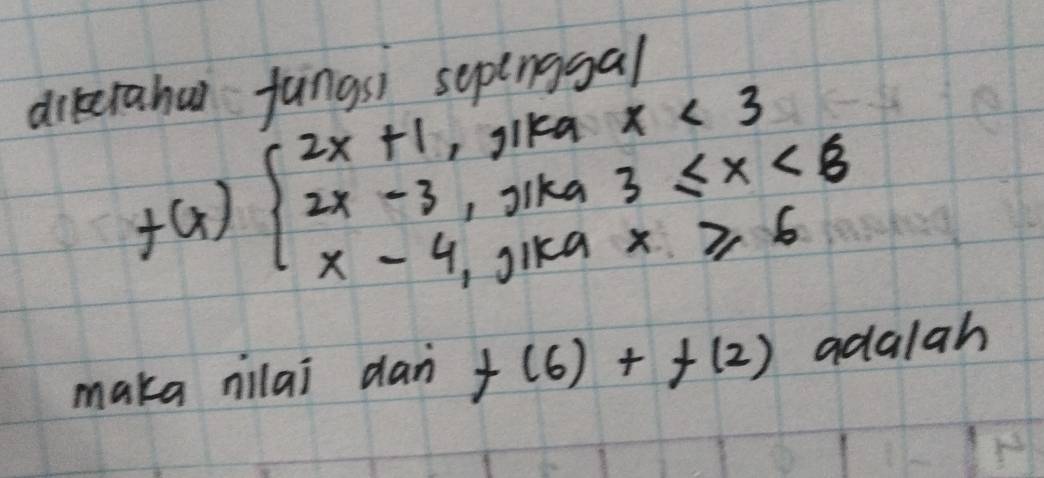 diketahui fungsi sepenggal
2x + 1, jika x < 3
f(x) { 2x - 3, jika 3 ≤ x < 6
x - 4, jika x ≥ 6
maka nilai dari f(6) + f(2) adalah